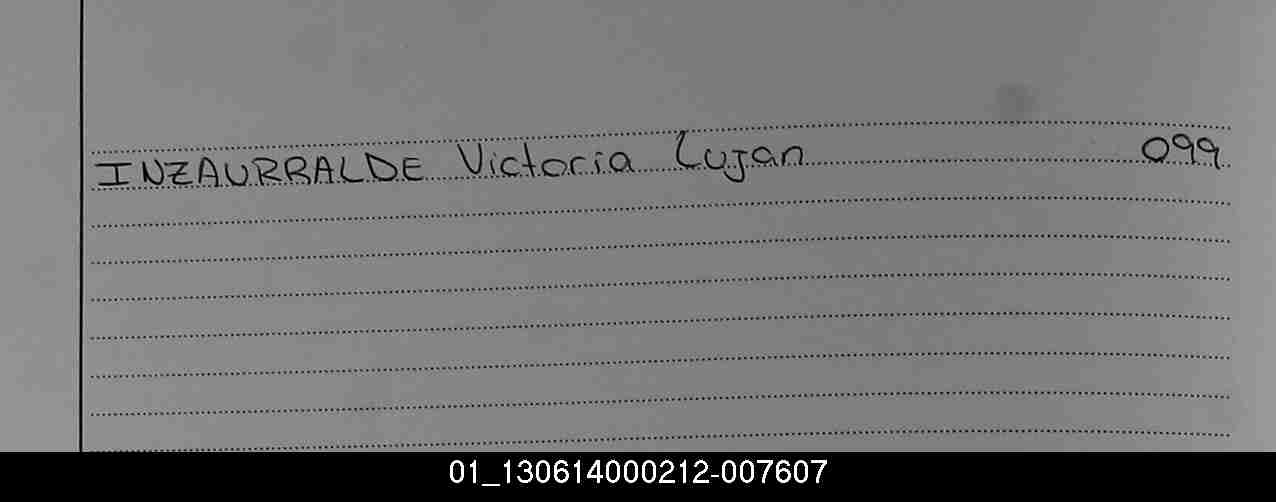 INZAURRALDE Victoria Lujan 099
01_130614000212-007607